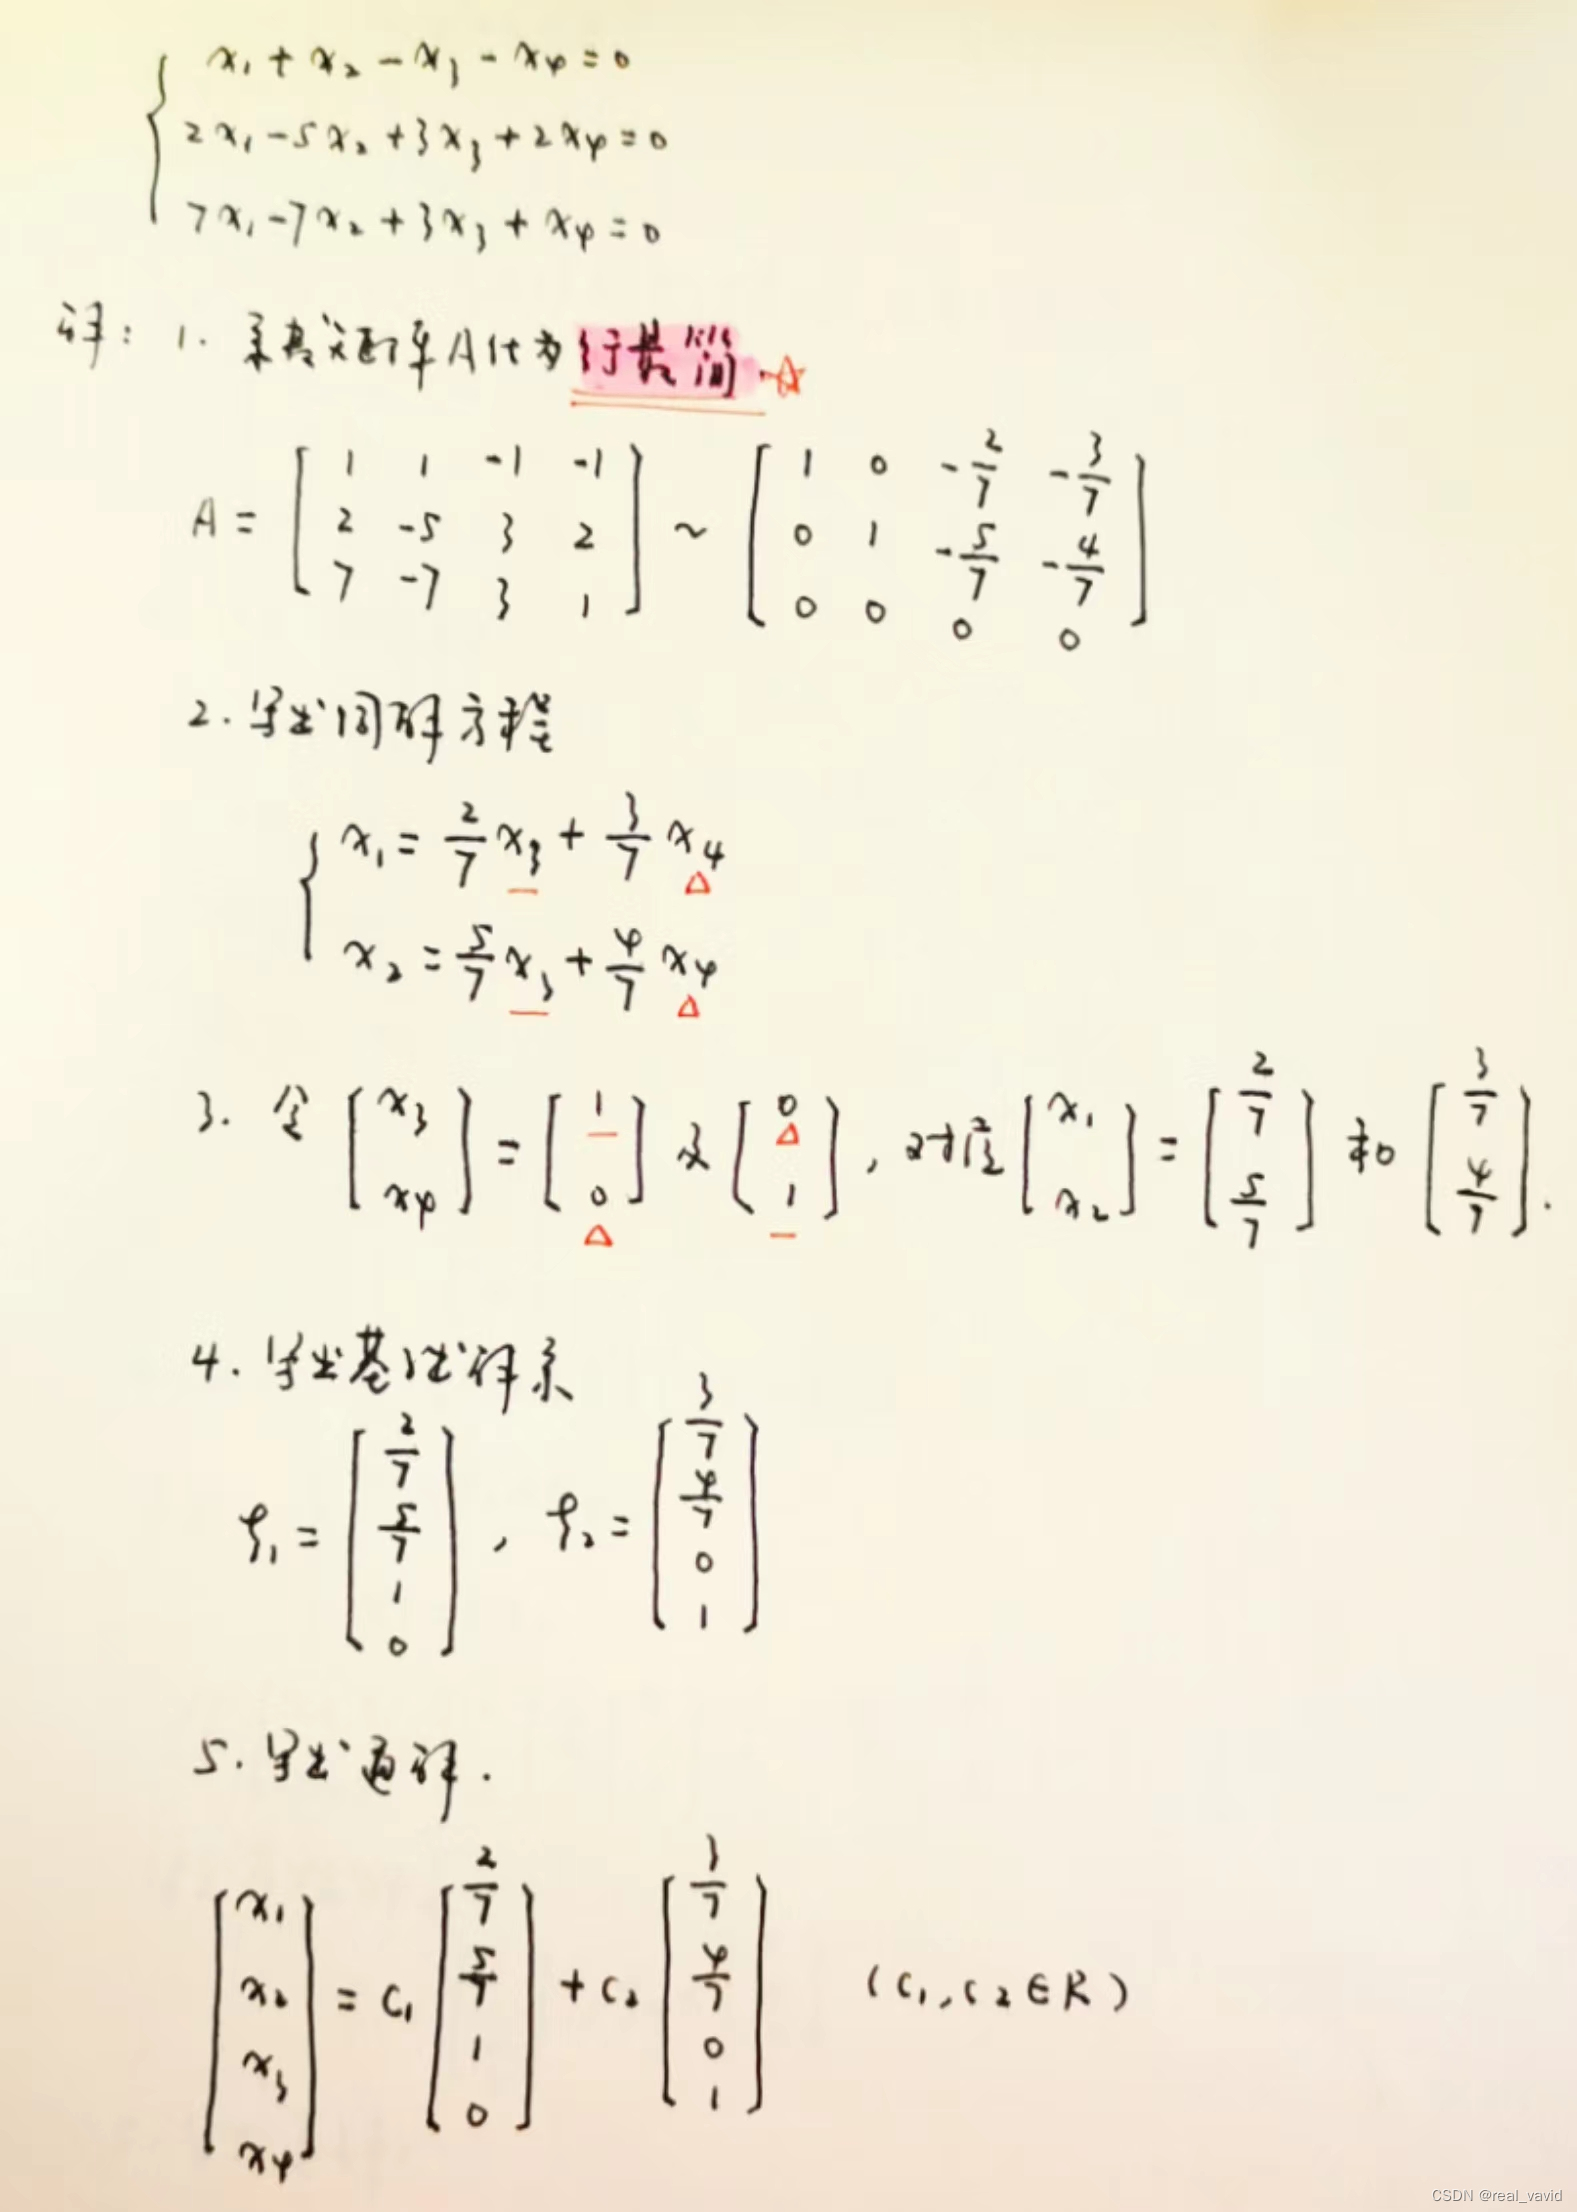 x₁ + x₂ - x₃ - x₄ = 0
2x₁ - 5x₂ + 3x₃ + 2x₄ = 0
7x₁ - 7x₂ + 3x₃ + x₄ = 0
解: 1. 系数矩阵A化为行最简
A = [1 1 -1 -1; 2 -5 3 2; 7 -7 3 1] ~ [1 0 -2/7 -3/7; 0 1 -5/7 -4/7; 0 0 0 0]
2. 写出同解方程
x₁ = 2/7 x₃ + 3/7 x₄
x₂ = 5/7 x₃ + 4/7 x₄
3. 令 [x₃; x₄] = [1; 0] 及 [0; 1], 对应 [x₁; x₂] = [2/7; 5/7] 和 [3/7; 4/7].
4. 写出基础解系
ξ₁ = [2/7; 5/7; 1; 0], ξ₂ = [3/7; 4/7; 0; 1]
5. 写出通解.
[x₁; x₂; x₃; x₄] = c₁ [2/7; 5/7; 1; 0] + c₂ [3/7; 4/7; 0; 1] (c₁, c₂ ∈ R)
CSDN @real_vavid